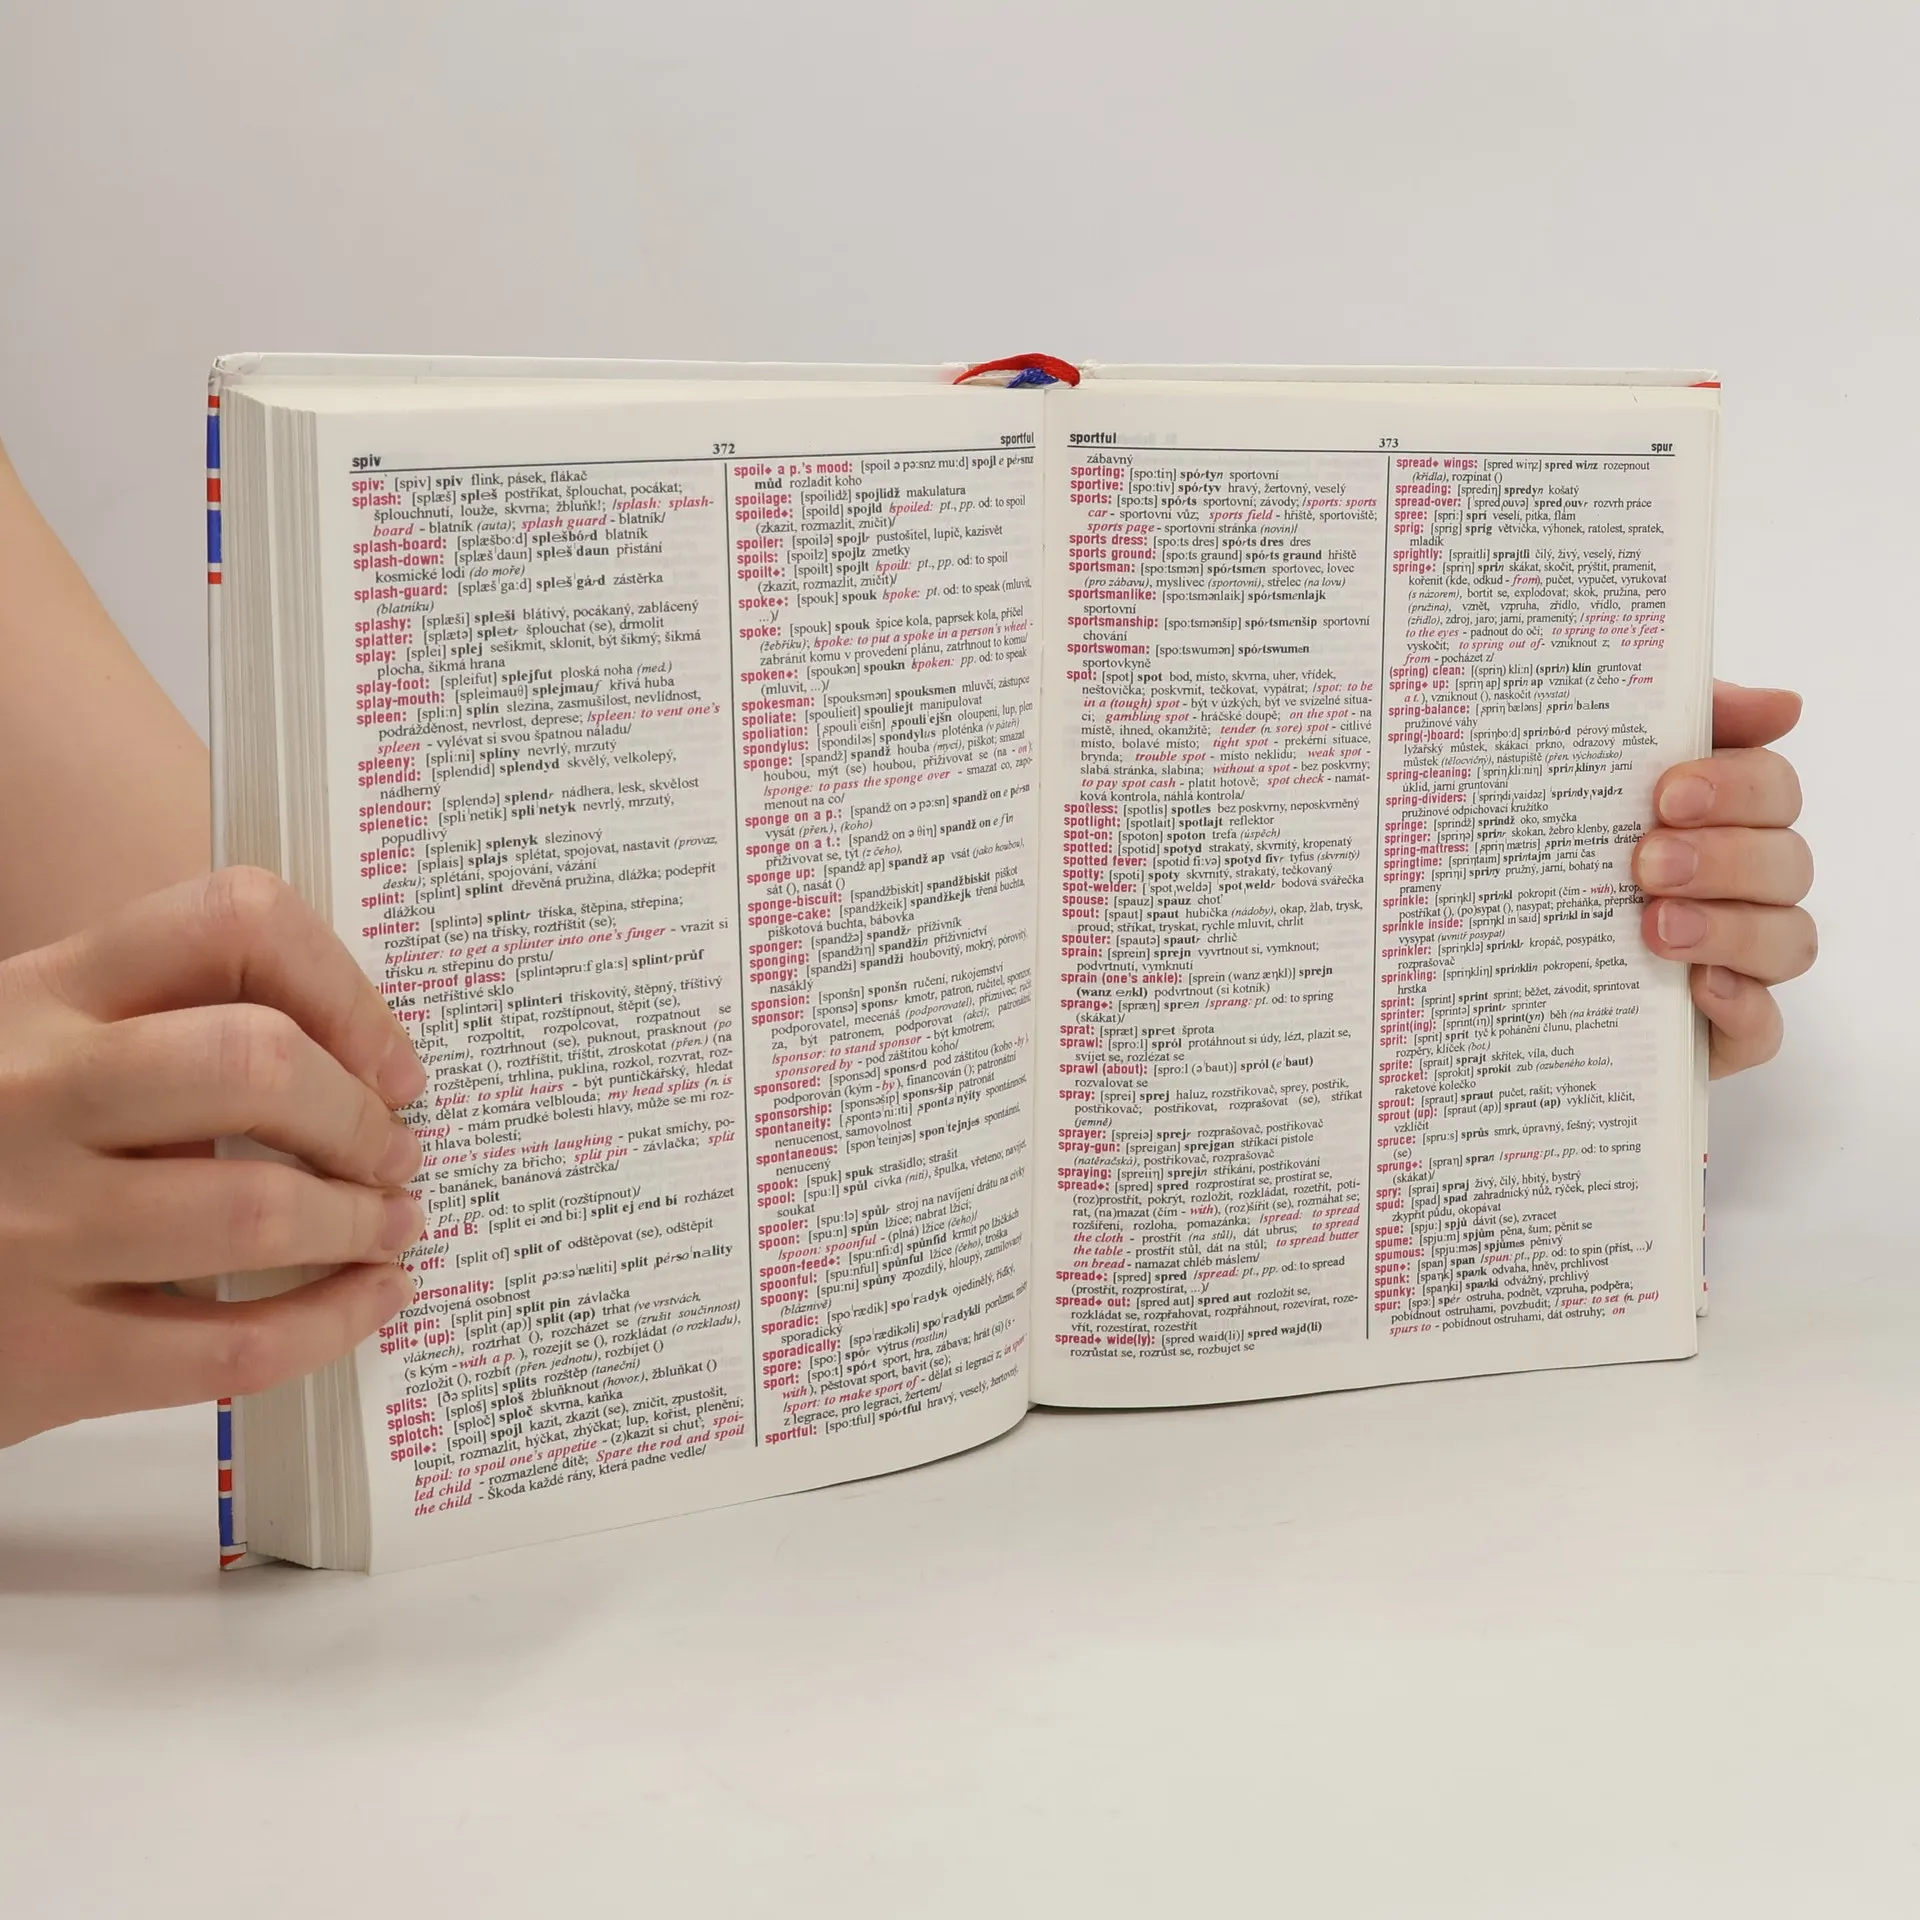 spiv
372
sportful
spiv: [spiv] spiv flink, pásek, flákač
splash: [splæš] spleš postříkat, šplouchat, pocákat;
šplouchnutí, louže, skvrna; žbluňk!; /splash: splash-
board - blatník (auta); splash guard - blatník/
splash-board: [splæšbo:d] splešbórd blatník
splash-down: [splæš'daun] spleš'daun přistání
kosmické lodi (do moře)
splash-guard: [splæš'ga:d] spleš'gárd zástěrka
(blatníku)
splashy: [splæši] spleši blátivý, pocákaný, zablácený
splatter: [splætə] spletr šplouchat (se), drmolit
splay: [splei] splej sešikmit, sklonit, být šikmý; šikmá
plocha, šikmá hrana
splay-foot: [spleifut] splejfut ploská noha (med.)
splay-mouth: [spleimauθ] splejmauf křivá huba
spleen: [spli:n] splín slezina, zasmušilost, nevlídnost,
podrážděnost, nevrlost, deprese; /spleen: to vent one's
spleen - vylévat si svou špatnou náladu/
spleeny: [spli:ni] splíny nevrlý, mrzutý
splendid: [splendid] splendyd skvělý, velkolepý,
nádherný
splendour: [splendə] splendr nádhera, lesk, skvělost
splenetic: [spli'netik] spli'netyk nevrlý, mrzutý,
popudlivý
splenic: [splenik] splenyk slezinový
splice: [splais] splajs splétat, spojovat, nastavit (provaz,
desku); splétání, spojování, vázání
splint: [splint] splint dřevěná pružina, dlážka; podepřít
dlážkou
splinter: [splintə] splintr tříska, štěpina, střepina;
rozštípat (se) na třísky, roztříštit (se);
/splinter: to get a splinter into one's finger - vrazit si
třísku n. střepinu do prstu/
linter-proof glass: [splintəpru:f gla:s] splintrprúf
glás netříštivé sklo
tery: [splintəri] splinteri třískovitý, štěpný, tříštivý
[split] split štípat, rozštípnout, štěpit (se),
rozpoltit, rozpolcovat, rozpatnout se
roztrhnout (se), puknout, prasknout (po
praskat (), roztříštit, tříštit, ztroskotat (přen.) (na
rozštěpení, trhlina, puklina, rozkol, rozvrat, roz-
split: to split hairs - být puntičkářský, hledat
dělat z komára velblouda; my head splits (n. is
- mám prudké bolesti hlavy, může se mi roz-
hlava bolestí;
one's sides with laughing - pukat smíchy, po-
se smíchy za břicho; split pin - závlačka; split
- banánek, banánová zástrčka/
[split] split
pt., pp. od: to split (rozštípnout)/
A and B: [split ei ənd bi:] split ej end bí rozházet
(přátele)
off: [split of] split of odštěpovat (se), odštěpit
personality: [split ,pə:sə'næliti] split ,pérso'nality
rozdvojená osobnost
split pin: [split pin] split pin závlačka
split⬥ (up): [split (ap)] split (ap) trhat (ve vrstvách,
vláknech), roztrhat (), rozcházet se (zrušit součinnost)
(s kým - with a p. ), rozejít se (), rozkládat (o rozkladu),
rozložit (), rozbít (přen. jednotu), rozbíjet ()
splits: [ðə splits] splits rozštěp (taneční)
splosh: [sploš] sploš žbluňknout (hovor.), žbluňkat ()
splotch: [sploč] sploč skvrna, kaňka
spoil⬥: [spoil] spojl kazit, zkazit (se), zničit, zpustošit,
loupit, rozmazlit, hýčkat, zhýčkat; lup, kořist, plenění;
/spoil: to spoil one's appetite - (z)kazit si chuť; spoi-
led child - rozmazlené dítě; Spare the rod and spoil
the child - Škoda každé rány, která padne vedle/
spoil⬥ a p.'s mood: [spoil ə pə:snz mu:d] spojl e pérsnz
můd rozladit koho
spoilage: [spoilidž] spojlidž makulatura
spoiled⬥: [spoild] spojld /spoiled: pt., pp. od: to spoil
(zkazit, rozmazlit, zničit)/
spoiler: [spoilə] spojlr pustošitel, lupič, kazisvět
spoils: [spoilz] spojlz zmetky
spoilt⬥: [spoilt] spojlt /spoilt: pt., pp. od: to spoil
(zkazit, rozmazlit, zničit)/
spoke⬥: [spouk] spouk /spoke: pt. od: to speak (mluvit,
...)/
spoke: [spouk] spouk špice kola, paprsek kola, příčel
(žebříku); /spoke: to put a spoke in a person's wheel -
zabránit komu v provedení plánu, zatrhnout to komu/
spoken⬥: [spoukən] spoukn /spoken: pp. od: to speak
(mluvit, ...)/
spokesman: [spouksmən] spouksmen mluvčí, zástupce
spoliate: [spoulieit] spouliejt manipulovat
spoliation: [ˌspouli'eišn] ˌspouli'ejšn oloupení, lup, plen
spondylus: [spondiləs] spondylus ploténka (v páteři)
sponge: [spandž] spandž houba (mycí), piškot; smazat
houbou, mýt (se) houbou, přiživovat se (na - on );
/sponge: to pass the sponge over - smazat co, zapo-
menout na co/
sponge on a p.: [spandž on ə pə:sn] spandž on e pérsn
vysát (přen.), (koho)
sponge on a t.: [spandž on ə θiŋ] spandž on e fin
přiživovat se, týt (z čeho),
sponge up: [spandž ap] spandž ap vsát (jako houbou),
sát (), nasát ()
sponge-biscuit: [spandžbiskit] spandžbiskit piškot
sponge-cake: [spandžkeik] spandžkejk třená buchta,
piškotová buchta, bábovka
sponger: [spandžə] spandžr příživník
sponging: [spandžiŋ] spandžin příživnictví
spongy: [spandži] spandži houbovitý, mokrý, pórovitý,
nasáklý
sponsion: [sponšn] sponšn ručení, rukojemství
sponsor: [sponsə] sponsr kmotr, patron, ručitel, sponzor,
podporovatel, mecenáš (podporovatel), příznivec; ručit
za, být patronem, podporovat (akci); patronátní
/sponsor: to stand sponsor - být kmotrem;
sponsored by - pod záštitou koho/
sponsored: [sponsəd] sponsrd pod záštitou (koho - by ),
podporován (kým - by), financován (); patronátní
sponsorship: [sponsəšip] sponsršip patronát
spontaneity: [ˌspontə'ni:iti] ˌsponta'nýity spontánnost,
nenucenost, samovolnost
spontaneous: [spon'teinjəs] spon'tejnjes spontánní,
nenucený
spook: [spuk] spuk strašidlo; strašit
spool: [spu:l] spúl cívka (nití), špulka, vřeteno; navíjet,
soukat
spooler: [spu:lə] spúlr stroj na navíjení drátu na cívky
spoon: [spu:n] spún lžíce; nabrat lžící;
/spoon: spoonful - (plná) lžíce (čeho)/
spoon-feed⬥: [spu:nfi:d] spúnfíd krmit po lžičkách
spoonful: [spu:nful] spúnful lžíce (čeho), troška
spoony: [spu:ni] spúny zpozdilý, hloupý, zamilovaný
(bláznivě)
sporadic: [spo'rædik] spo'radyk ojedinělý, řídký,
sporadický
sporadically: [spə'rædikəli] spo'radykli porůznu,
spore: [spo:] spór výtrus (rostlin)
sport: [spo:t] spórt sport, hra, zábava; hrát (si) (s -
with ), pěstovat sport, bavit (se);
/sport: to make sport of - dělat si legraci z; in sport -
z legrace, pro legraci, žertem/
sportful: [spo:tful] spórtful hravý, veselý, žertovný,
sportful
373
spur
zábavný
sporting: [spo:tiŋ] spórtyn sportovní
sportive: [spo:tiv] spórtyv hravý, žertovný, veselý
sports: [spo:ts] spórts sportovní; závody; /sports: sports
car - sportovní vůz; sports field - hřiště, sportoviště;
sports page - sportovní stránka (novin)/
sports dress: [spo:ts dres] spórts dres dres
sports ground: [spo:ts graund] spórts graund hřiště
sportsman: [spo:tsmən] spórtsmen sportovec, lovec
(pro zábavu), myslivec (sportovní), střelec (na lovu)
sportsmanlike: [spo:tsmənlaik] spórtsmenlajk
sportovní
sportsmanship: [spo:tsmənšip] spórtsmenšip sportovní
chování
sportswoman: [spo:tswumən] spórtswumen
sportovkyně
spot: [spot] spot bod, místo, skvrna, uher, vřídek,
neštovička; poskvrnit, tečkovat, vypátrat; /spot: to be
in a (tough) spot - být v úzkých, být ve svízelné situa-
ci; gambling spot - hráčské doupě; on the spot - na
místě, ihned, okamžitě; tender (n. sore) spot - citlivé
místo, bolavé místo; tight spot - prekérní situace,
brynda; trouble spot - místo neklidu; weak spot -
slabá stránka, slabina; without a spot - bez poskvrny;
to pay spot cash - platit hotově; spot check - namát-
ková kontrola, náhlá kontrola/
spotless: [spotlis] spotles bez poskvrny, neposkvrněný
spotlight: [spotlait] spotlajt reflektor
spot-on: [spoton] spoton trefa (úspěch)
spotted: [spotid] spotyd strakatý, skvrnitý, kropenatý
spotted fever: [spotid fi:və] spotyd fívr tyfus (skvrnitý)
spotty: [spoti] spoty skvrnitý, strakatý, tečkovaný
spot-welder: ['spotˌweldə] 'spotˌweldr bodová svářečka
spouse: [spauz] spauz choť
spout: [spaut] spaut hubička (nádoby), okap, žlab, trysk,
proud; stříkat, tryskat, rychle mluvit, chrlit
spouter: [spautə] spautr chrlič
sprain: [sprein] sprejn vyvrtnout si, vymknout;
podvrtnutí, vymknutí
sprain (one's ankle): [sprein (wanz æŋkl)] sprejn
(wanz enkl) podvrtnout (si kotník)
sprang⬥: [spræŋ] spren /sprang: pt. od: to spring
(skákat)/
sprat: [spræt] spret šprota
sprawl: [spro:l] spról protáhnout si údy, lézt, plazit se,
svíjet se, rozlézat se
sprawl (about): [spro:l (ə'baut)] spról (e'baut)
rozvalovat se
spray: [sprei] sprej haluz, rozstřikovač, sprey, postřik,
postřikovač; postřikovat, rozprašovat (se), stříkat
(jemně)
sprayer: [spreiə] sprejr rozprašovač, postřikovač
spray-gun: [spreigan] sprejgan stříkací pistole
(natěračská), postřikovač, rozprašovač
spraying: [spreiiŋ] sprejin stříkání, postřikování
spread⬥: [spred] spred rozprostírat se, prostírat se,
(roz)prostřít, pokrýt, rozložit, rozkládat, rozetřít, potí-
rat, (na)mazat (čím - with), (roz)šířit (se), rozmáhat se;
rozšíření, rozloha, pomazánka; /spread: to spread
the cloth - prostřít (na stůl), dát ubrus; to spread
the table - prostřít stůl, dát na stůl; to spread butter
on bread - namazat chléb máslem/
spread⬥: [spred] spred /spread: pt., pp. od: to spread
(prostřít, rozprostírat, ...)/
spread⬥ out: [spred aut] spred aut rozložit se,
rozkládat se, rozpřahovat, rozpřáhnout, rozevírat, roze-
vřít, rozestírat, rozestřít
spread⬥ wide(ly): [spred waid(li)] spred wajd(li)
rozrůstat se, rozrůst se, rozbujet se
spread⬥ wings: [spred wiŋz] spred winz rozepnout
(křídla), rozpínat ()
spreading: [sprediŋ] spredyn košatý
spread-over: ['spredˌouvə] 'spredˌouvr rozvrh práce
spree: [spri:] sprí veselí, pitka, flám
sprig: [sprig] sprig větvička, výhonek, ratolest, spratek,
mladík
sprightly: [spraitli] sprajtli čilý, živý, veselý, řízný
spring⬥: [spriŋ] sprin skákat, skočit, prýštit, pramenit,
kořenit (kde, odkud - from), pučet, vypučet, vyrukovat
(s názorem), bortit se, explodovat; skok, pružina, pero
(pružina), vznět, vzpruha, zřídlo, vřídlo, pramen
(zřídlo), zdroj, jaro; jarní, pramenitý; /spring: to spring
to the eyes - padnout do očí; to spring to one's feet -
vyskočit; to spring out of- vzniknout z; to spring
from - pocházet z/
(spring) clean: [(spriŋ) kli:n] (sprin) klín gruntovat
spring⬥ up: [spriŋ ap] sprin ap vznikat (z čeho - from
a t. ), vzniknout (), naskočit (vyvstat)
spring-balance: [ˌspriŋ'bæləns] ˌsprin'balens
pružinové váhy
spring(-)board: [spriŋbo:d] sprinbórd pérový můstek,
lyžařský můstek, skákací prkno, odrazový můstek,
můstek (tělocvičný), nástupiště (přen. východisko)
spring-cleaning: ['spriŋˌkli:niŋ] 'sprinˌklínyn jarní
úklid, jarní gruntování
spring-dividers: ['spriŋdiˌvaidəz] 'sprindyˌvajdrz
pružinové odpichovací kružítko
springe: [sprindž] sprindž oko, smyčka
springer: [spriŋə] sprinr skokan, žebro klenby, gazela
spring-mattress: ['spriŋ'mætris] 'sprin'metris
springtime: [spriŋtaim] sprintajm jarní čas
springy: [spriŋi] spriny pružný, jarní, bohatý na
prameny
sprinkle: [spriŋkl] sprinkl pokropit (čím - with),
postříkat (), (po)sypat (), nasypat; přeháňka, přeprška
sprinkle inside: [spriŋkl in'said] sprinkl in'sajd
vysypat (uvnitř posypat)
sprinkler: [spriŋklə] sprinklr kropáč, posypátko,
rozprašovač
sprinkling: [spriŋkliŋ] sprinklin pokropení, špetka,
hrstka
sprint: [sprint] sprint sprint; běžet, závodit, sprintovat
sprinter: [sprintə] sprintr sprinter
sprint(ing): [sprint(iŋ)] sprint(yn) běh (na krátké tratě)
sprit: [sprit] sprit tyč k pohánění člunu, plachetní
rozpěry, klíček (bot.)
sprite: [sprait] sprajt skřítek, víla, duch
sprocket: [sprokit] sprokit zub (ozubeného kola),
raketové kolečko
sprout: [spraut] spraut pučet, rašit; výhonek
sprout (up): [spraut (ap)] spraut (ap) vyklíčit, klíčit,
vzklíčit
spruce: [spru:s] sprůs smrk, úpravný, fešný; vystrojit
(se)
sprung⬥: [spraŋ] spran /sprung:pt., pp. od: to spring
(skákat)/
spry: [sprai] spraj živý, čilý, hbitý, bystrý
spud: [spad] spad zahradnický nůž, rýček, plecí stroj;
zkypřit půdu, okopávat
spue: [spju:] spjů dávit (se), zvracet
spume: [spju:m] spjům pěna, šum; pěnit se
spumous: [spju:məs] spjůmes pěnivý
spun⬥: [span] span /spun: pt., pp. od: to spin (příst, ...)/
spunk: [spaŋk] spank odvaha, hněv, prchlivost
spunky: [spaŋki] spanki odvážný, prchlivý
spur: [spə:] spér ostruha, podnět, vzpruha, podpěra;
pobídnout ostruhami, povzbudit; / spur: to set (n. put)
spurs to - pobídnout ostruhami, dát ostruhy; on